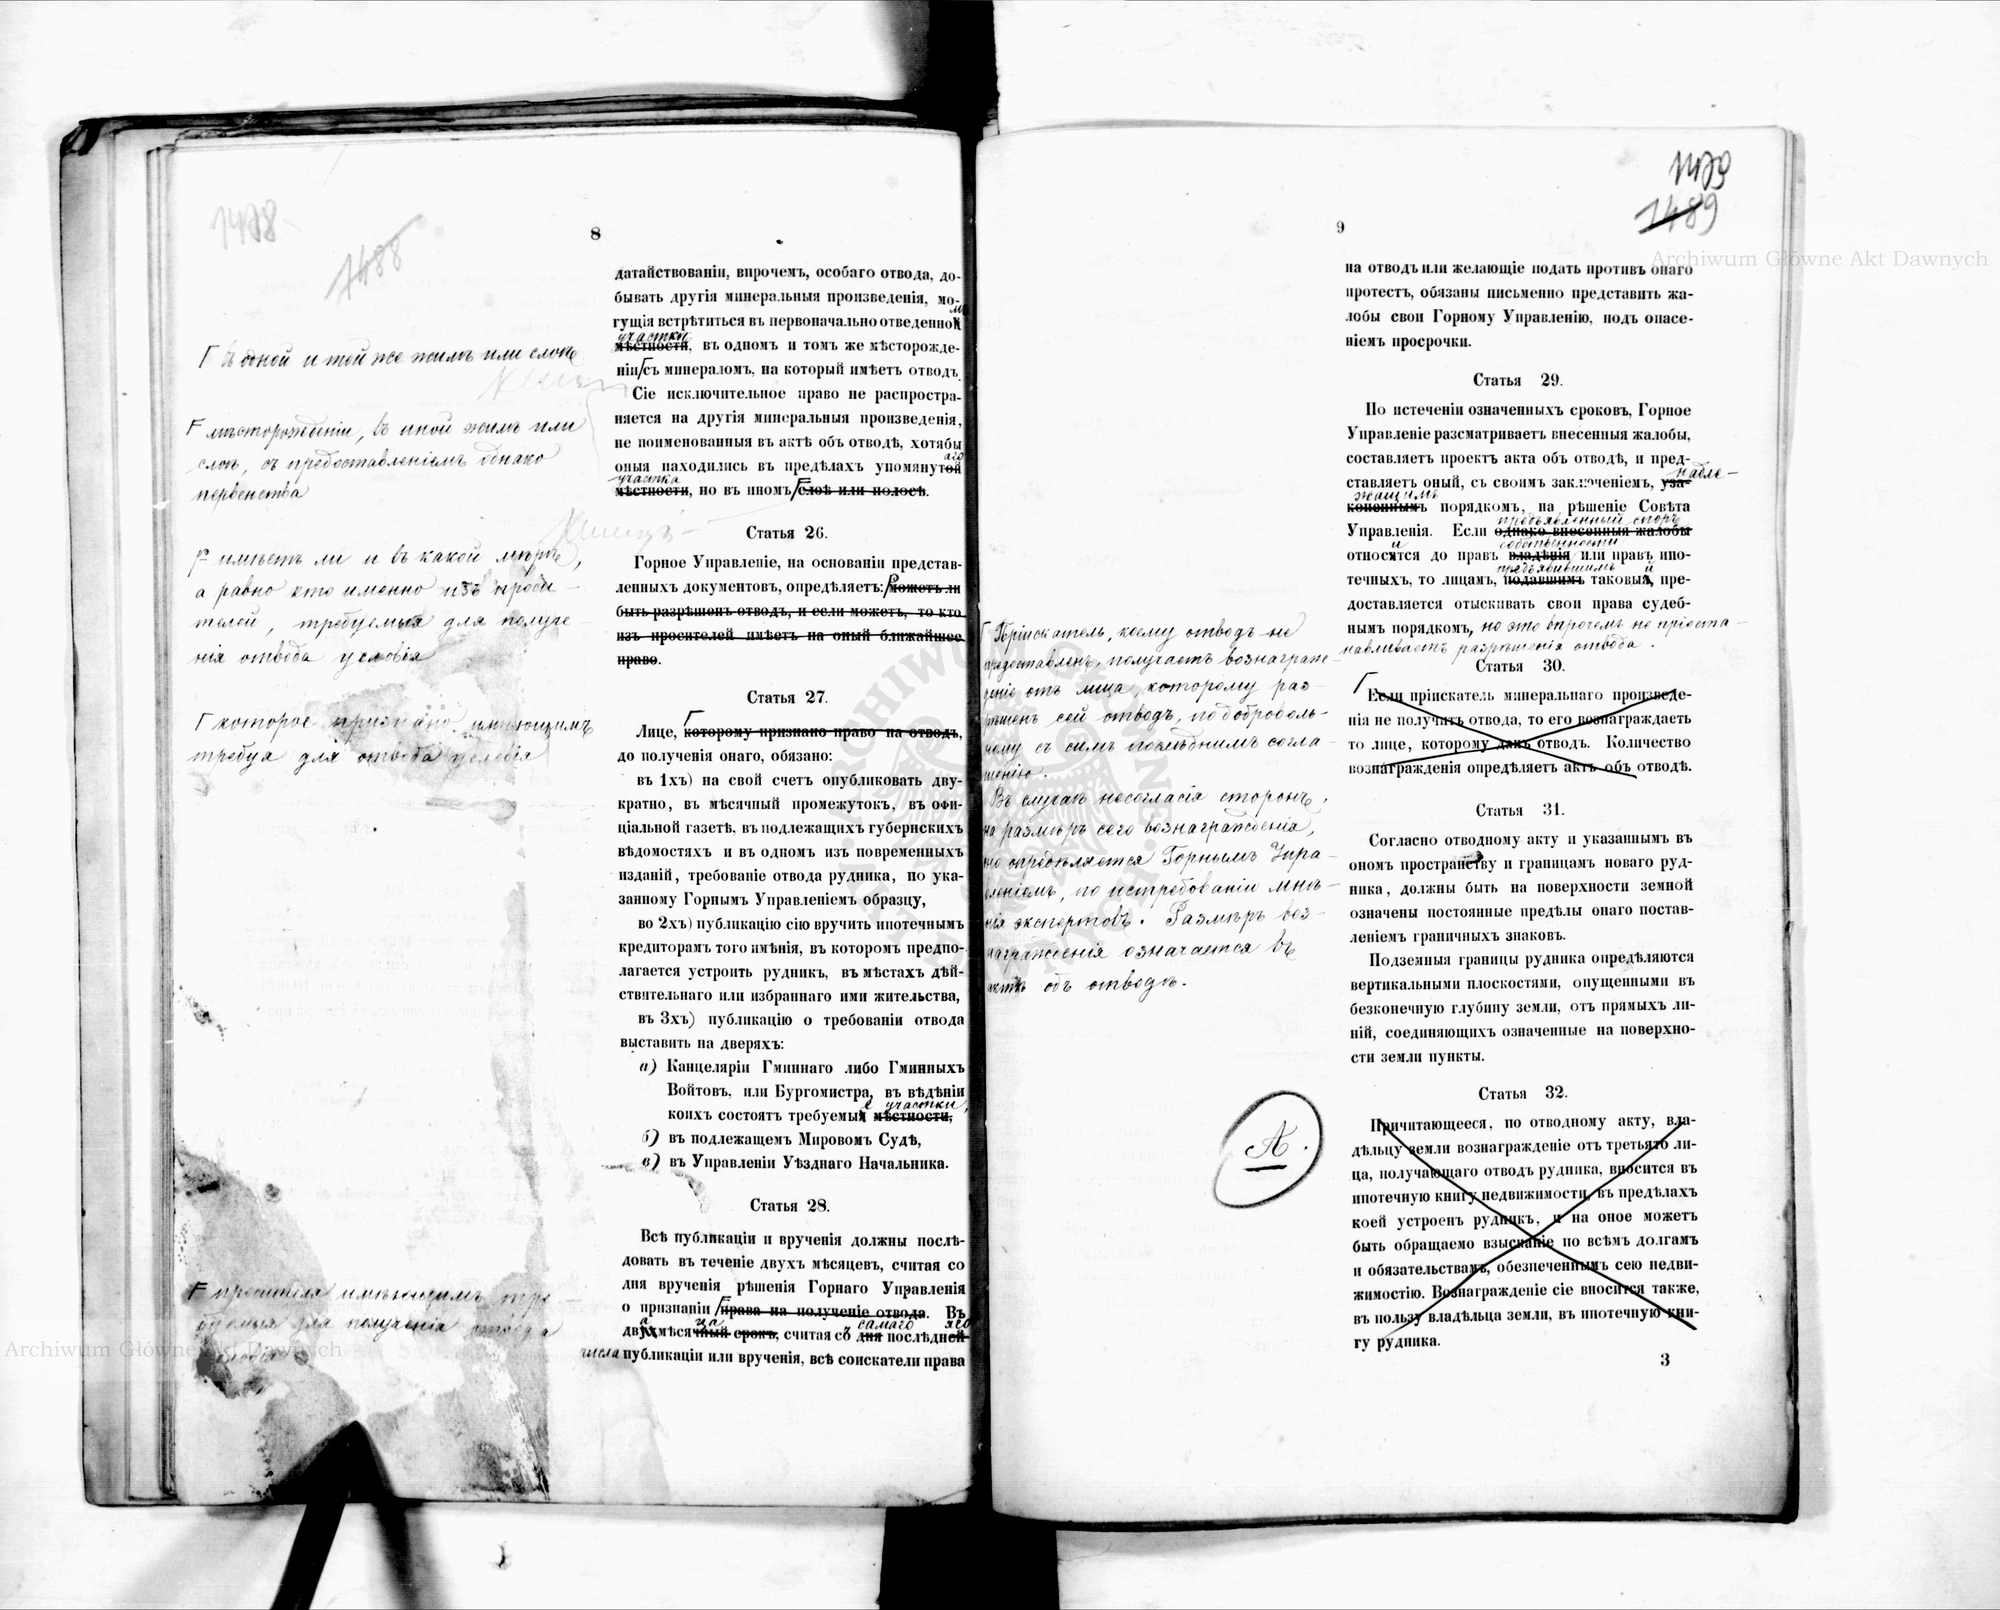 1478
1488
8
Г въ одной и той же жилѣ или слоѣ
F мѣсторожденіи, въ иной жилѣ или
слоѣ, съ предоставленіемъ однако
первенства
F имѣетъ ли и въ какой мѣрѣ,
а равно кто именно изъ проси-
телей, требуемыя для получе-
нія отвода условія
Г которое признано имѣющимъ
требуя для отвода условія
F просителя имѣющимъ тре-
буемыя для полученія отвода
датайствованіи, впрочемъ, особаго отвода, до-
бывать другія минеральныя произведенія, мо-
гущія встрѣтиться въ первоначально отведенной
участкѣ
мѣстности, въ одномъ и томъ же мѣсторожде-
ніи/съ минераломъ, на который имѣетъ отводъ.
Сіе исключительное право не распростра-
няется на другія минеральныя произведенія,
не поименованныя въ актѣ объ отводѣ, хотябы
аго
оныя находились въ предѣлахъ упомянутой
участка
мѣстности, но въ иномъ слоѣ или полосѣ.
Статья 26.
Горное Управленіе, на основаніи представ-
ленныхъ документовъ, опредѣляетъ: можетъ ли
быть разрѣшенъ отводъ, и если можетъ, то кто
изъ просителей имѣетъ на оный ближайшее
право.
Статья 27.
Лице, которому признано право на отводъ,
до полученія онаго, обязано:
въ 1хъ) на свой счетъ опубликовать дву-
кратно, въ мѣсячный промежутокъ, въ офи-
ціальной газетѣ, въ подлежащихъ губернскихъ
вѣдомостяхъ и въ одномъ изъ повременныхъ
изданій, требованіе отвода рудника, по ука-
занному Горнымъ Управленіемъ образцу,
во 2хъ) публикацію сію вручить ипотечнымъ
кредиторамъ того имѣнія, въ которомъ предпо-
лагается устроить рудникъ, въ мѣстахъ дѣй-
ствительнаго или избраннаго ими жительства,
въ 3хъ) публикацію о требованіи отвода
выставить на дверяхъ:
а) Канцеляріи Гминнаго либо Гминныхъ
Войтовъ, или Бургомистра, въ вѣдѣніи
е участки,
коихъ состоятъ требуемыя мѣстности,
б) въ подлежащемъ Мировомъ Судѣ,
в) въ Управленіи Уѣзднаго Начальника.
Статья 28.
Всѣ публикаціи и врученія должны послѣ-
довать въ теченіе двухъ мѣсяцевъ, считая со
дня врученія рѣшенія Горнаго Управленія
о признаніи права на полученіе отвода. Въ
а ца самаго яго
двухмѣсячный срокъ, считая съ дня послѣдней
числа публикаціи или врученія, всѣ соискатели права
1479
1489
9
на отводъ или желающіе подать противъ онаго
протестъ, обязаны письменно представить жа-
лобы свои Горному Управленію, подъ опасе-
ніемъ просрочки.
Статья 29.
По истеченіи означенныхъ сроковъ, Горное
Управленіе разсматриваетъ внесенныя жалобы,
составляетъ проектъ акта объ отводѣ, и пред-
надле-
ставляетъ оный, съ своимъ заключеніемъ, уза-
жащимъ
коненнымъ порядкомъ, на рѣшеніе Совѣта
предъявленный споръ
Управленія. Если однако внесенныя жалобы
и собственности
относятся до правъ владѣнія или правъ ипо-
предъявившимъ й
течныхъ, то лицамъ, подавшимъ таковыя, пре-
доставляется отыскивать свои права судеб-
нымъ порядкомъ, но это впрочемъ не пріоста-
навливаетъ разрѣшенія отвода.
Статья 30.
Если пріискатель минеральнаго произведе-
нія не получитъ отвода, то его вознаграждаетъ
то лице, которому данъ отводъ. Количество
вознагражденія опредѣляетъ актъ объ отводѣ.
Г Пріискатель, коему отводъ не
предоставленъ, получаетъ вознаграж-
деніе отъ лица, которому раз-
рѣшенъ сей отводъ, по доброволь-
ному съ симъ послѣднимъ согла-
шенію.
Въ случаѣ несогласія сторонъ,
на размѣръ сего вознагражденія,
оно опредѣляется Горнымъ Упра-
вленіемъ, по истребованіи мнѣ-
нія экспертовъ. Размѣръ воз-
награжденія означается въ
актѣ объ отводѣ.
Статья 31.
Согласно отводному акту и указаннымъ въ
ономъ пространству и границамъ новаго руд-
ника, должны быть на поверхности земной
означены постоянные предѣлы онаго постав-
леніемъ граничныхъ знаковъ.
Подземныя границы рудника опредѣляются
вертикальными плоскостями, опущенными въ
безконечную глубину земли, отъ прямыхъ ли-
ній, соединяющихъ означенные на поверхно-
сти земли пункты.
Статья 32.
А.
Причитающееся, по отводному акту, вла-
дѣльцу земли вознагражденіе отъ третьяго ли-
ца, получающаго отводъ рудника, вносится въ
ипотечную книгу недвижимости, въ предѣлахъ
коей устроенъ рудникъ, и на оное можетъ
быть обращаемо взысканіе по всѣмъ долгамъ
и обязательствамъ, обезпеченнымъ сею недви-
жимостію. Вознагражденіе сіе вносится также,
въ пользу владѣльца земли, въ ипотечную кни-
гу рудника.
3
Archiwum Główne Akt Dawnych
Archiwum Główne Akt Dawnych